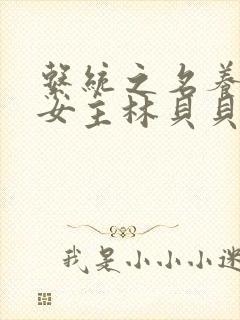 繫統之名養
女主林貝貝
我是小小小迷